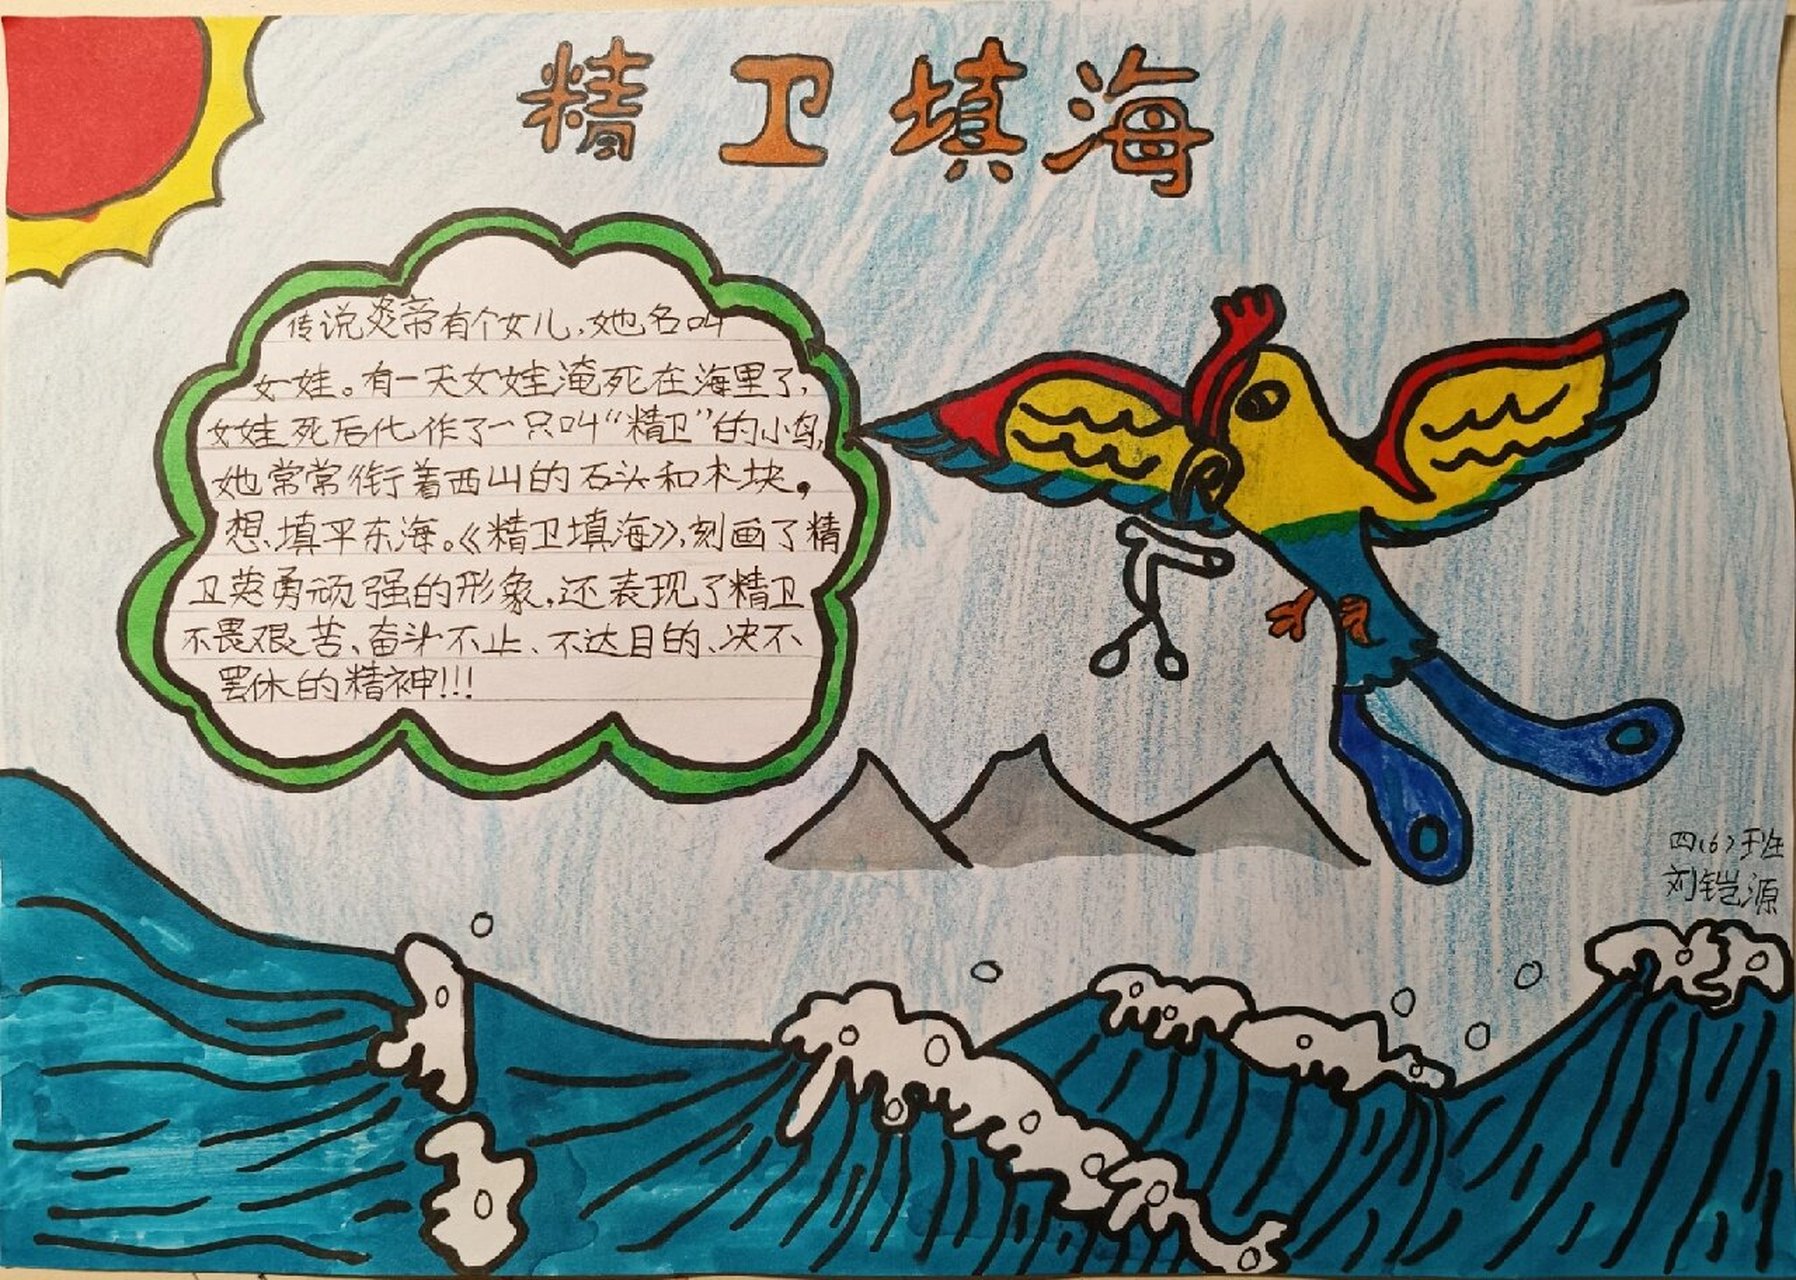 精卫填海
传说炎帝有个女儿,她名叫
女娃。有一天女娃淹死在海里了,
女娃死后化作了一只叫“精卫”的小鸟,
她常常衔着西山的石头和木块,
想填平东海。《精卫填海》,刻画了精
卫英勇顽强的形象,还表现了精卫
不畏艰苦、奋斗不止、不达目的、决不
罢休的精神!!!
四(6)班
刘铠源